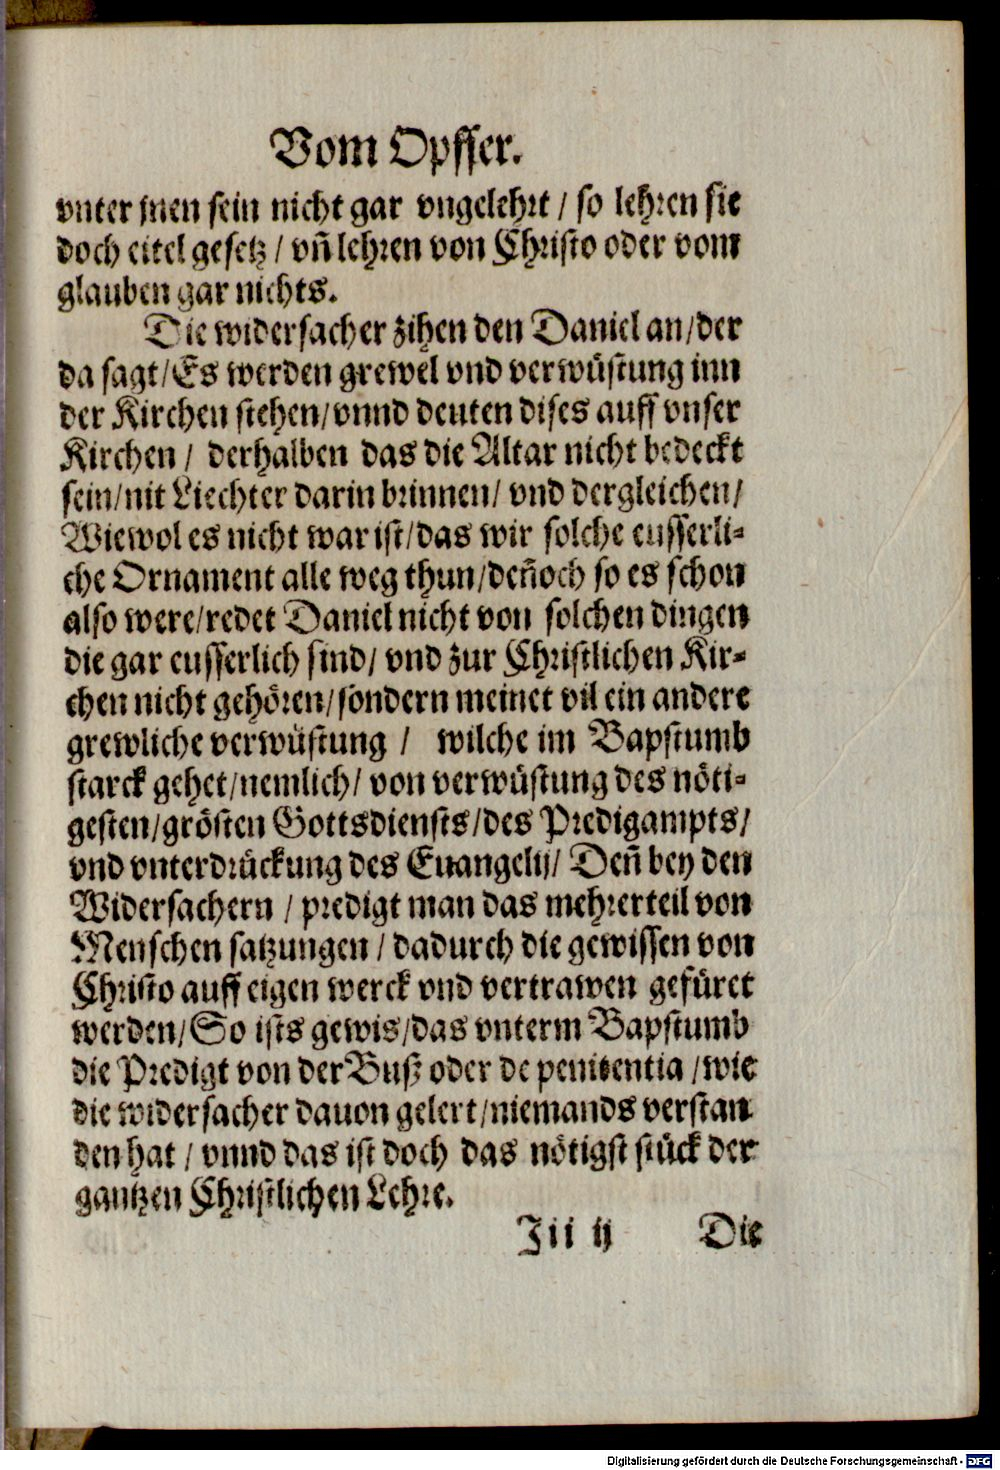 Vom Opffer.
vnter jnen sein nicht gar vngelehrt / so lehren sie
doch eitel gesetz / vñ lehren von Christo oder vom
glauben gar nichts.
Die widersacher zihen den Daniel an/der
da sagt/Es werden grewel vnd verwüstung inn
der Kirchen stehen/vnnd deuten dises auff vnser
Kirchen / derhalben das die Altar nicht bedeckt
sein/nit Liechter darin brinnen/ vnd dergleichen/
Wiewol es nicht war ist/das wir solche eusserli-
che Ornament alle weg thun/deñoch so es schon
also were/redet Daniel nicht von solchen dingen
die gar eusserlich sind/ vnd zur Christlichen Kir-
chen nicht gehören/sondern meinet vil ein andere
grewliche verwüstung / wilche im Bapstumb
starck gehet/nemlich/ von verwüstung des nöti-
gesten/grösten Gottsdiensts/des Predigampts/
vnd vnterdrückung des Euangelij/ Deñ bey den
Widersachern / predigt man das mehrerteil von
Menschen satzungen / dadurch die gewissen von
Christo auff eigen werck vnd vertrawen gefüret
werden/So ists gewis/das vnterm Bapstumb
die Predigt von der Buß oder de penitentia /wie
die widersacher dauon gelert/niemands verstan
den hat / vnnd das ist doch das nötigst stück der
gantzen Christlichen Lehre.
Jii ij Die
Digitalisierung gefördert durch die Deutsche Forschungsgemeinschaft - DFG